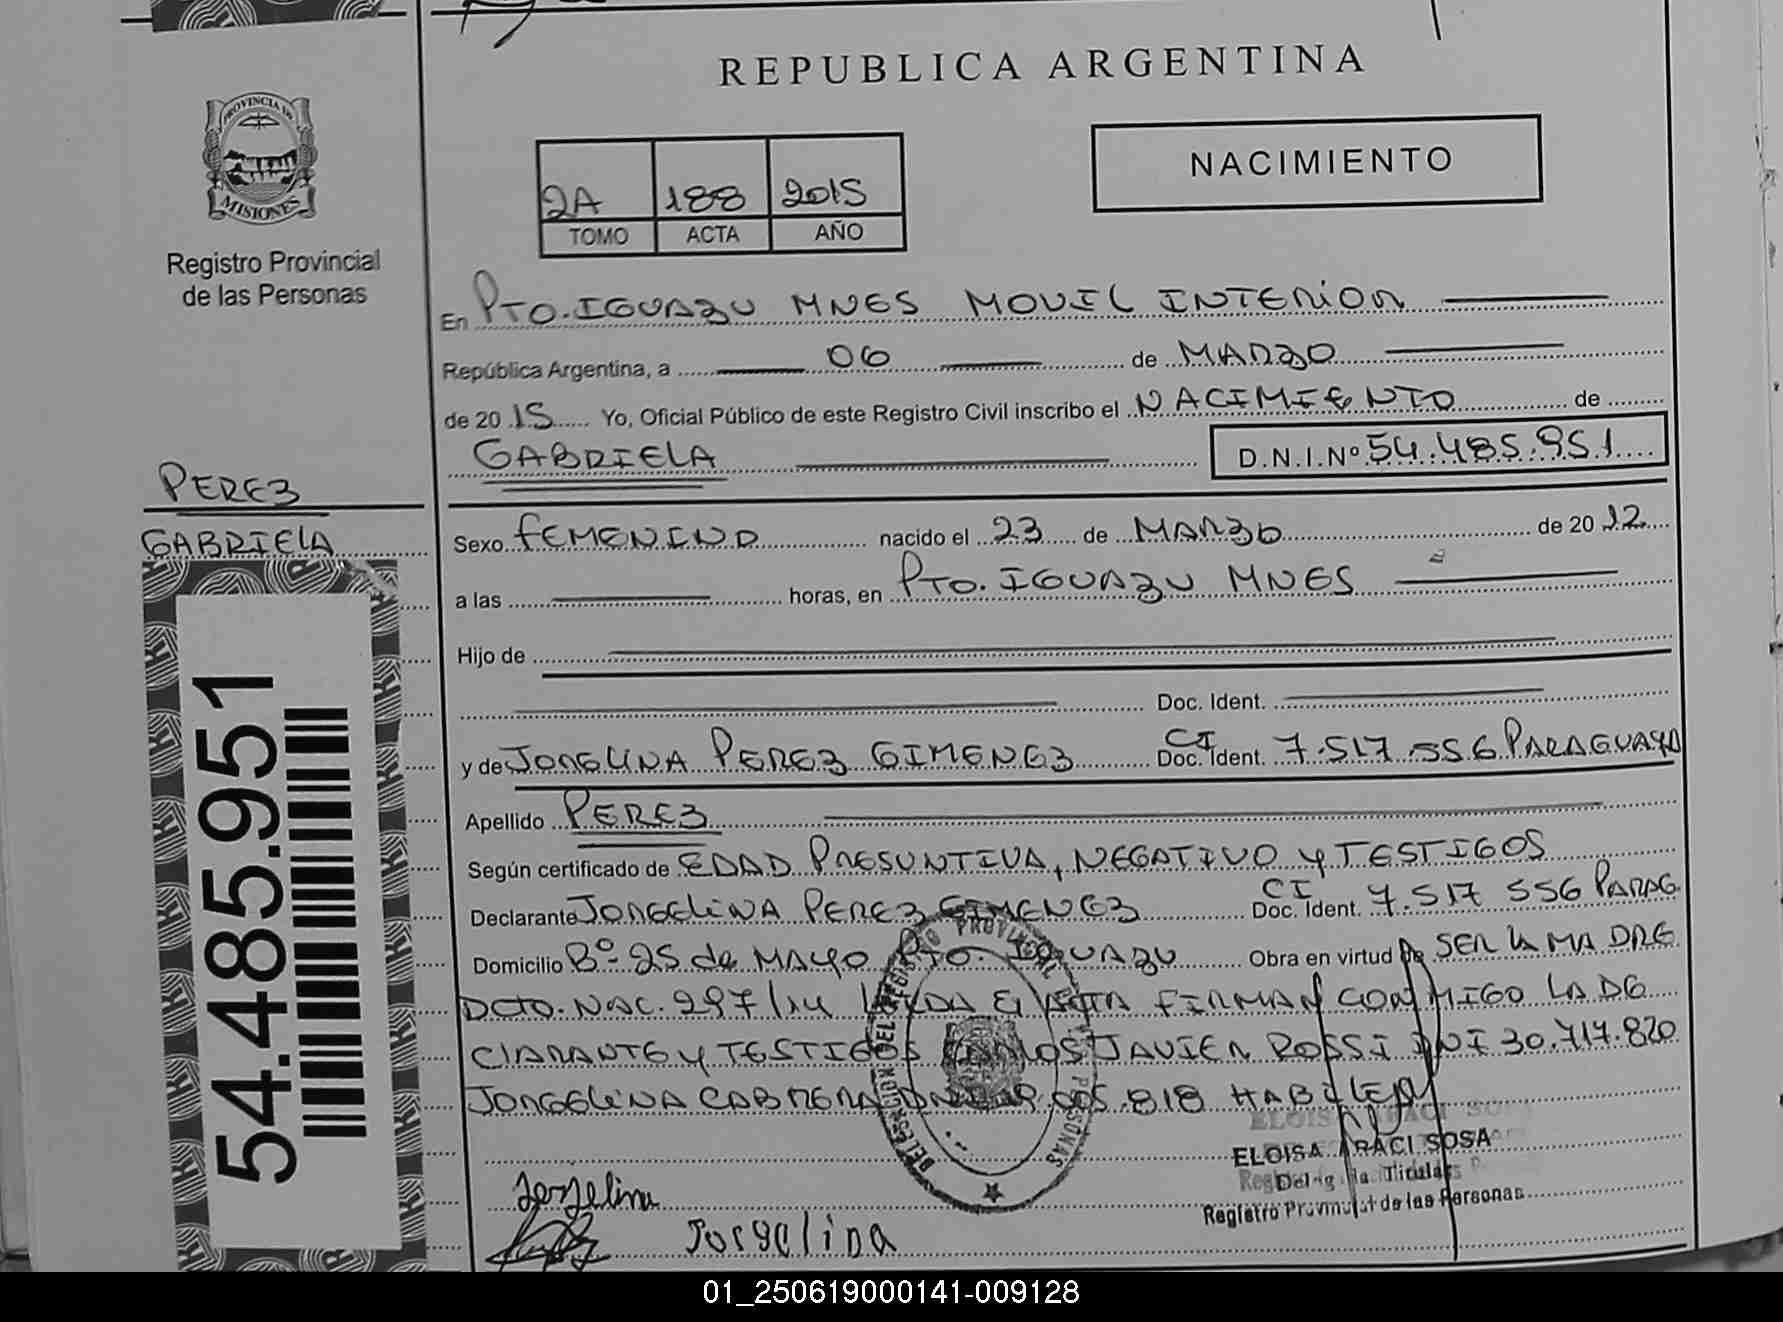 REPUBLICA ARGENTINA
PROVINCIA DE
MISIONES
Registro Provincial
de las Personas
NACIMIENTO
2A 188 2015
TOMO ACTA AÑO
En PTO. IGUAZU MNES MOVIL INTERIOR
República Argentina, a 06 de MARZO
de 20 15 Yo, Oficial Público de este Registro Civil inscribo el NACIMIENTO de
GABRIELA D.N.I.Nº 54.485.951
PEREZ
GABRIELA
Sexo FEMENINO nacido el 23 de MARZO de 20 12
a las horas, en PTO. IGUAZU MNES
Hijo de
Doc. Ident.
y de JORGELINA PEREZ GIMENEZ CI Doc. Ident. 7.517.556 PARAGUAYO
Apellido PEREZ
Según certificado de EDAD PRESUNTIVA, NEGATIVO y TESTIGOS
Declarante JORGELINA PEREZ GIMENEZ CI Doc. Ident. 7.517 556 PARAG
Domicilio Bº 25 de MAYO PTO. IGUAZU Obra en virtud de SER LA MADRE
DCTO. NAC. 297/14 LEIDA EL ACTA FIRMAN CONMIGO LA DE
CLARANTE y TESTIGOS CARLOS JAVIER ROSSI DNI 30.717.820
JORGELINA CABRERA DNI 005.818 HABILES
54.485.951
ELOISA ARACI SOSA
Delegada Titular
Registro Provincial de las Personas
Jorgelina
Jorgelina
01_250619000141-009128